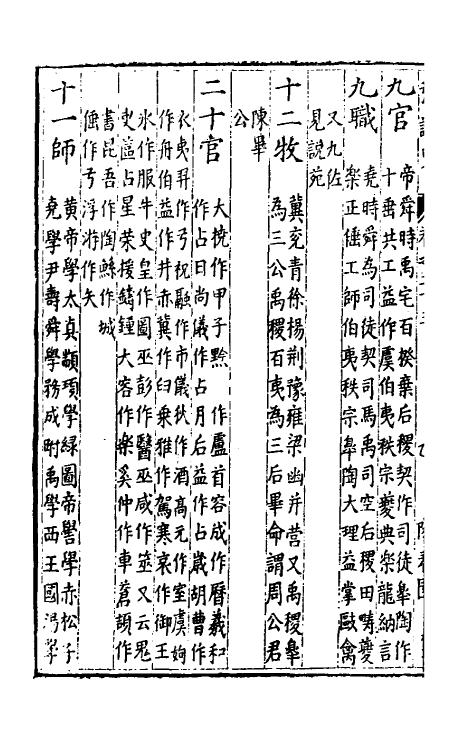 九官
帝舜時禹宅百揆棄后稷契作司徒皋陶作
十垂共工益作虞伯夷秩宗夔典樂龍納言
九職
堯時舜為司徒契司馬禹司空后稷田疇夔
樂正倕工師伯夷秩宗皋陶大理益掌敺禽
又九佐
見說苑
十二牧
冀兗青徐揚荆豫雍梁幽并營又禹稷皋
為三公禹稷百夷為三后畢命謂周公君
陳畢
公
二十官
大橈作甲子黔 作虛首容成作曆羲和
作占日尚儀作占月后益作占歲胡曹作
衣夷羿作弓祝融作市儀狄作酒高元作室虞姁
作舟伯益作井赤冀作臼乘雅作駕寒哀作御王
氷作服牛史皇作圖巫彭作醫巫咸作筮又云鬼
㬰區占星榮援鑄鍾大容作樂奚仲作車蒼頡作
書昆吾作陶鯀作城
倕作弓浮游作矢
十一師
黄帝學大真顓頊學緑圖帝嚳學赤松子
堯學尹壽舜學務成跗禹學西王國湯學